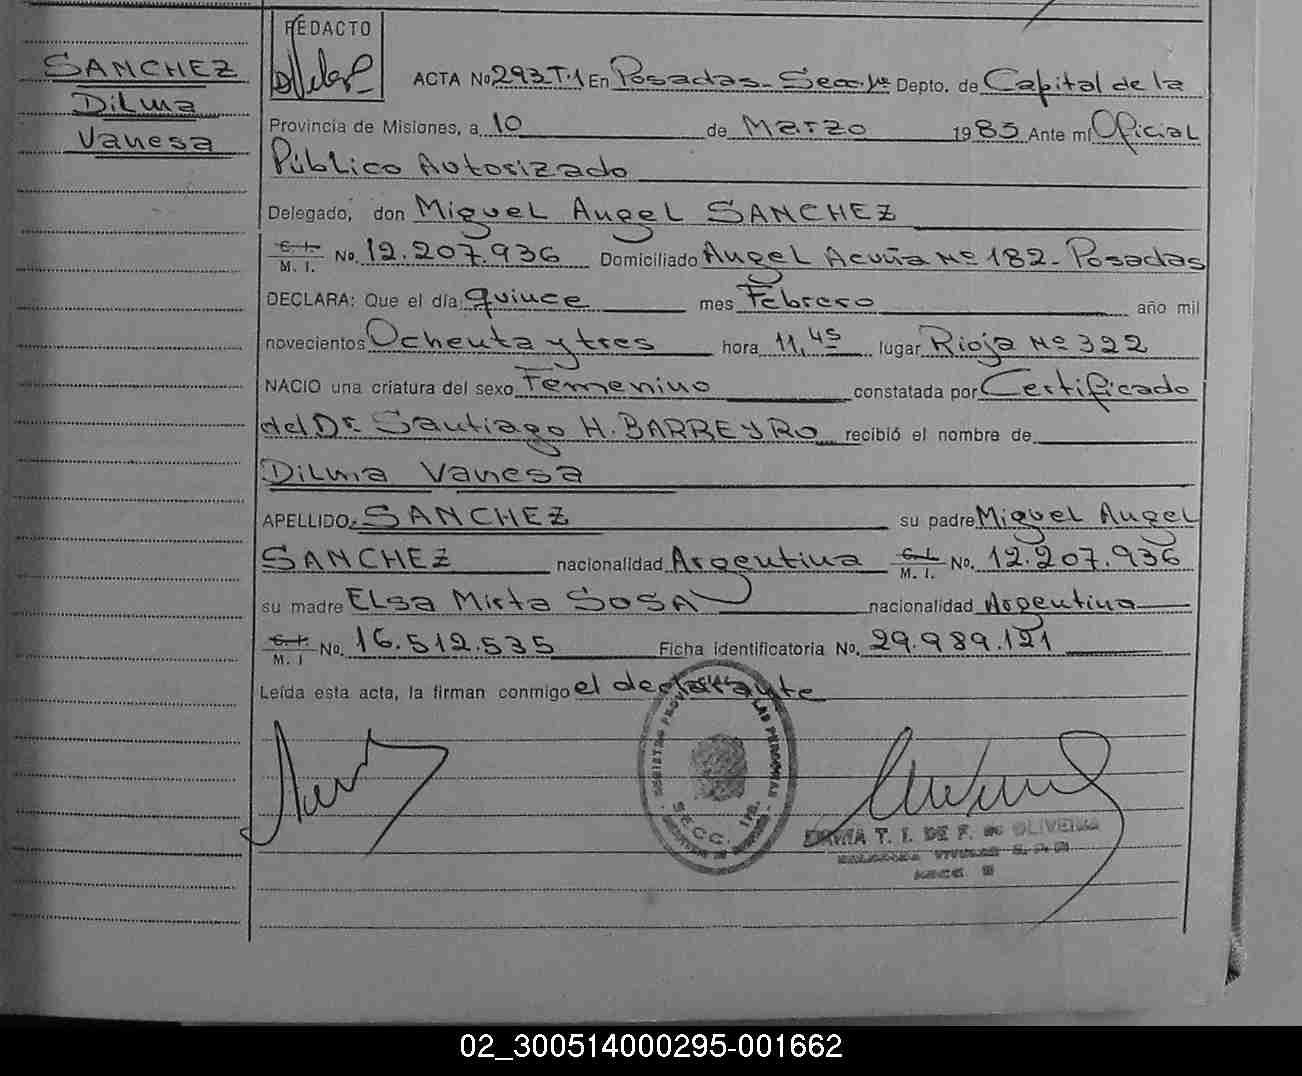 SANCHEZ
Dilma
Vanesa
REDACTO
ACTA No 293 T.1 En Posadas - Secc. 1ª Depto. de Capital de la
Provincia de Misiones, a 10 de Marzo 1983 Ante mí Oficial
Público Autorizado
Delegado, don Miguel Angel SANCHEZ
C. I. M. I. No. 12.207.936 Domiciliado Angel Acuña Nº 182 - Posadas
DECLARA: Que el día quince mes Febrero año mil
novecientos Ochenta y tres hora 11,45 lugar Rioja Nº 322
NACIO una criatura del sexo Femenino constatada por Certificado
del Dr. Santiago H. BARREYRO recibió el nombre de
Dilma Vanesa
APELLIDO: SANCHEZ su padre Miguel Angel
SANCHEZ nacionalidad Argentina C. I. M. I. No. 12.207.936
su madre Elsa Mirta SOSA nacionalidad Argentina
C. I. M. I No. 16.512.535 Ficha identificatoria No. 29.989.121
Leída esta acta, la firman conmigo el declarante
REGISTRO PROVINCIAL DE LAS PERSONAS
SECC. 1ra.
T. I. DE F. DE OLIVEIRA
02_300514000295-001662